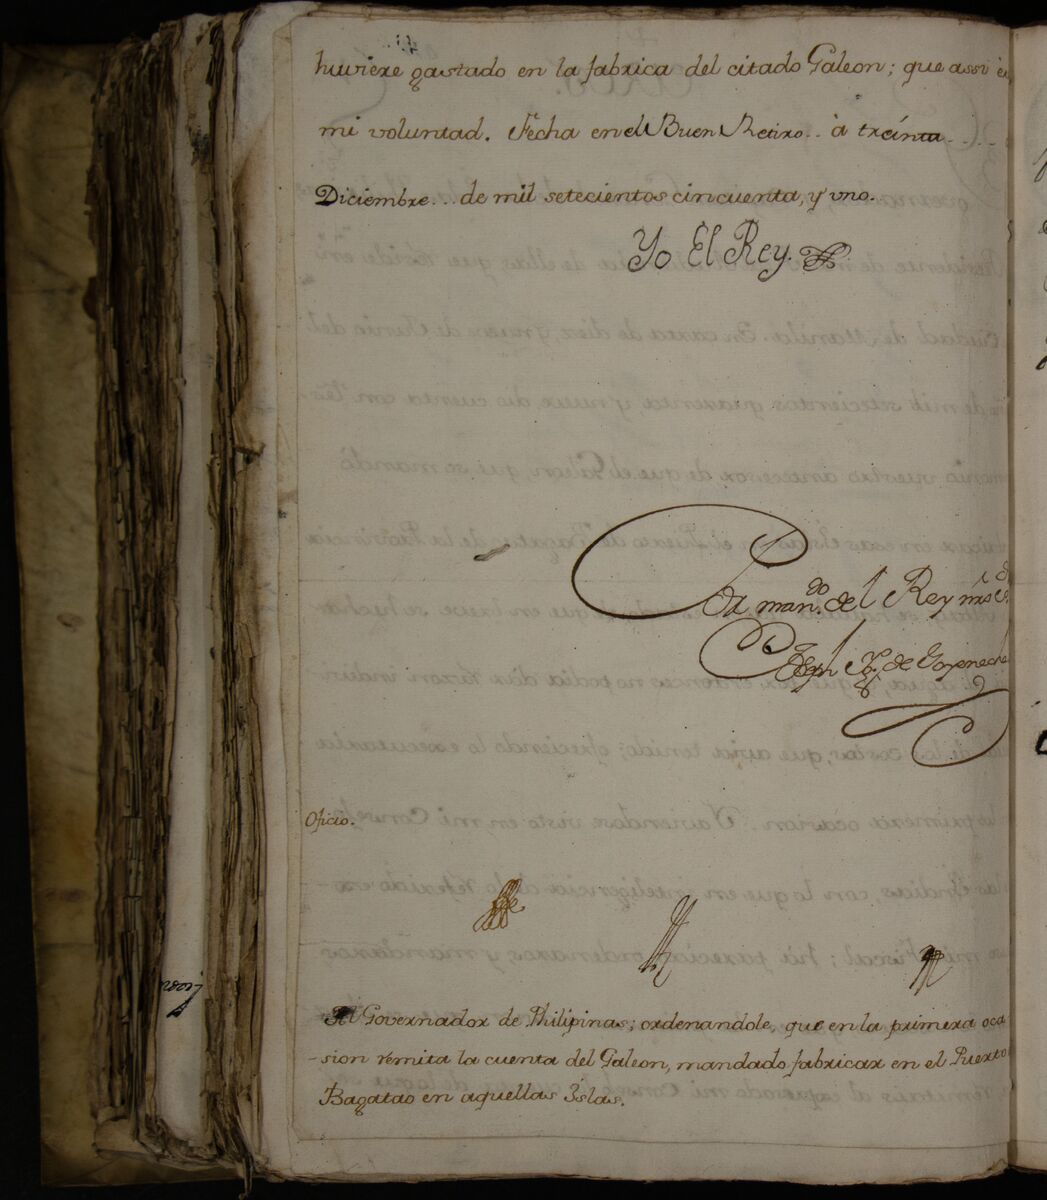 huviere gastado en la fabrica del citado Galeon; que assi és
mi voluntad. Fecha en el Buen Retiro.. à treinta....
Diciembre... de mil setecientos cincuenta, y uno.
Yo El Rey.
Por man.do del Rey nr̃o
Joseph de Goyeneche
Oficio.
Al Governador de Philipinas; ordenandole, que en la primera oca
-sion remita la cuenta del Galeon, mandado fabricar en el Puerto
Bagatao en aquellas Islas.